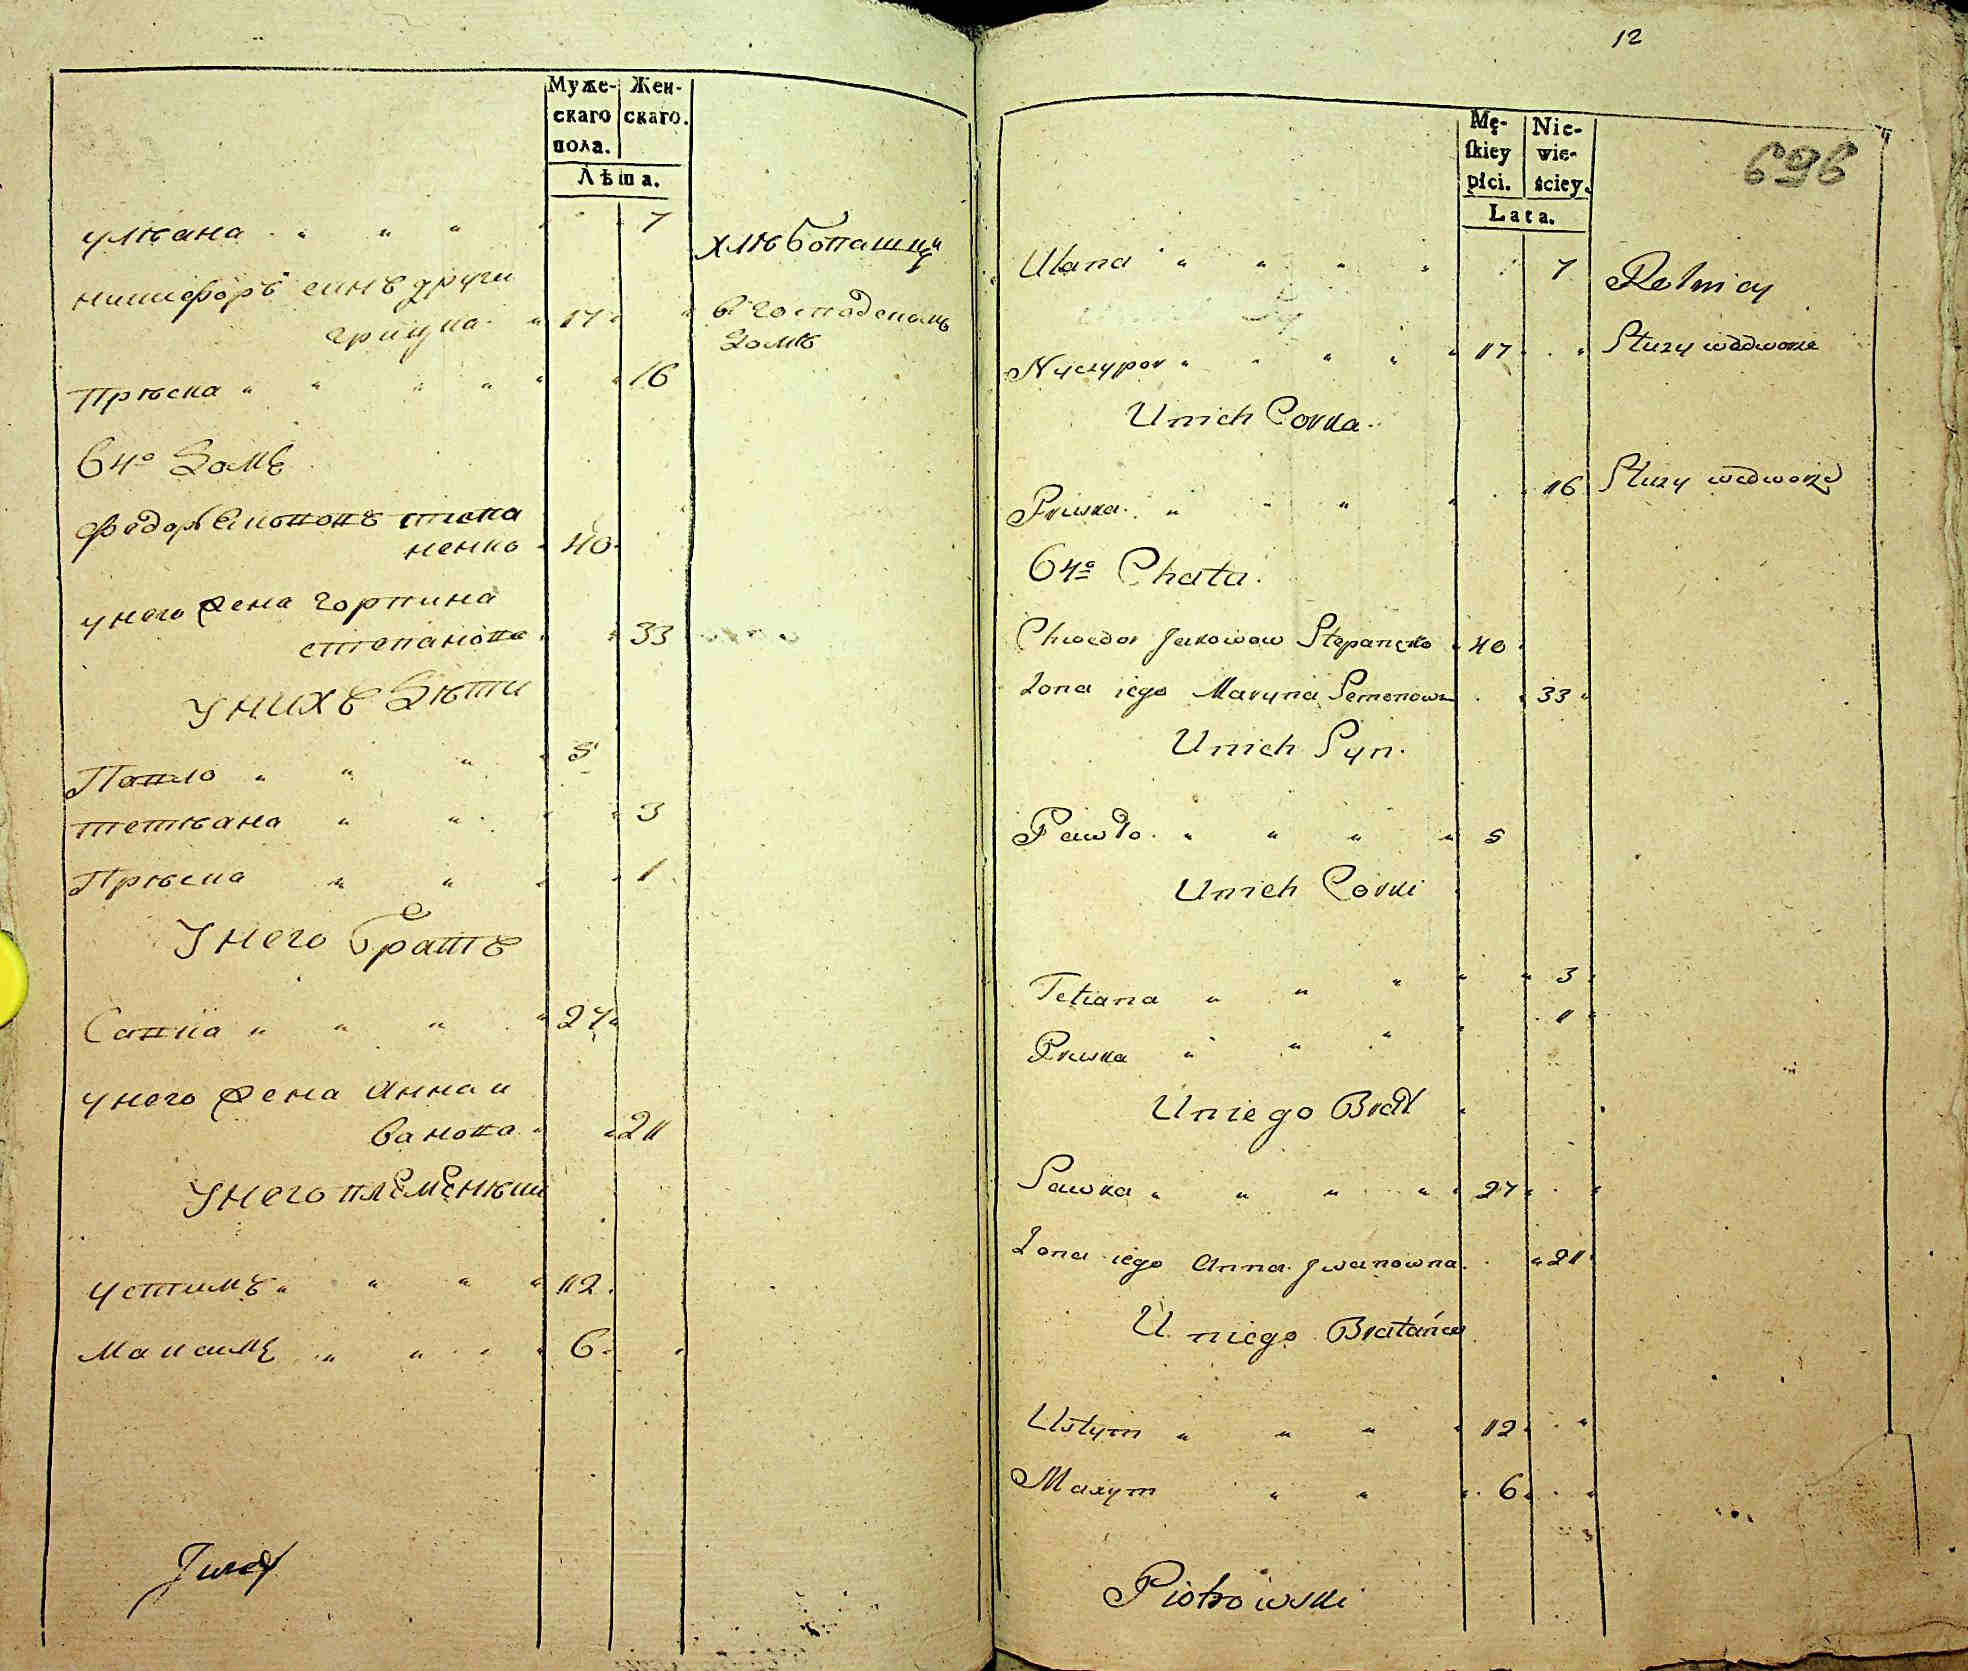 Муже- Жен-
скаго скаго.
пола.
Лѣта.
улѣана 7 хлѣбопашци
никифоръ синъ други
грицка 17 в господскомъ
домѣ
Прѣска 16
64º Домъ
Федоръ Якововъ степа
ненко 40
у него жена горпина
степанова 33
У нихъ Дѣти
Павло 5
тетѣана 3
Прѣска 1
У него Братъ
Савка 27
у него жена Анна и
ванова 21
У него племенѣки
устимъ 12
Макаимъ 6
Juzef
12
Mę- Nie-
skiey wie-
płci. ściey.
Lata.
959
Ulana 7 Rolnicy
Nyczypor 17 Słuzy wedworze
Unich Corka
Priska 16 Słuzy wedworze
64º Chata
Chwedor Jakowow Stepanęko 40
Zona iego Maryna Semenowa 33
Unich Syn.
Pawło 5
Unich Corki
Tetiana 3
Priska 1
Uniego Brat
Sawka 27
Zona iego Anna Jwanowna 21
U niego Bratańce
Ustym 12
Maxym 6
Piotrowski